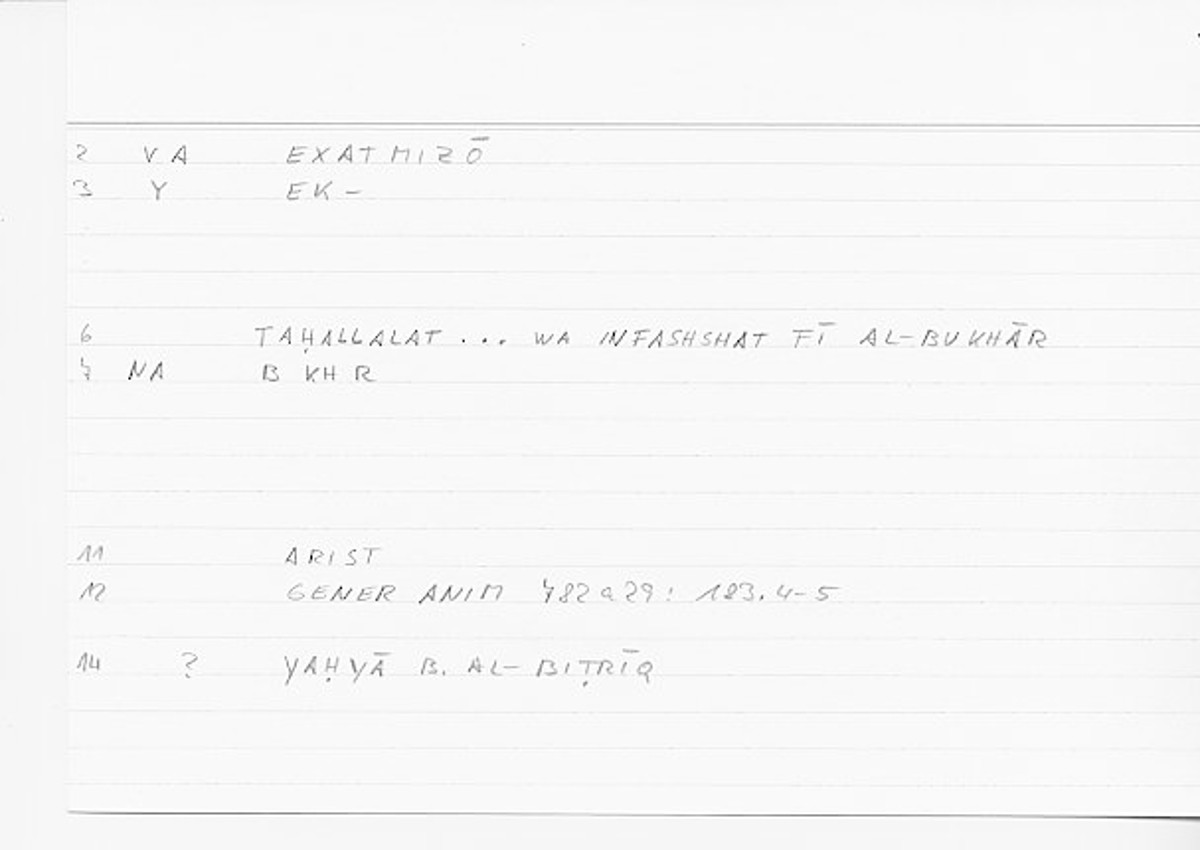 2 VA EXATMIZŌ
3 Y EK-
6 TAḤALLALAT ... WA INFASHSHAT FĪ AL-BUKHĀR
7 NA B KH R
11 ARIST
12 GENER ANIM 782a29: 183.4-5
14 ? YAḤYĀ B. AL-BIṬRĪQ